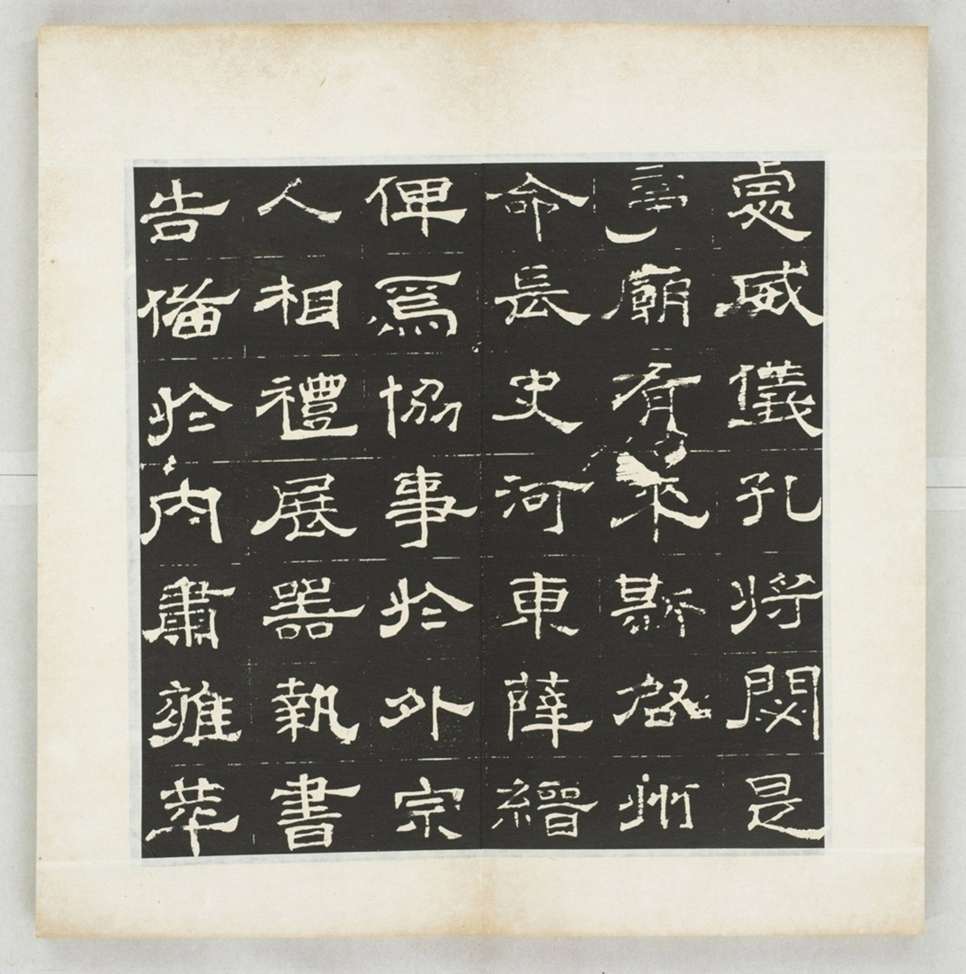 處威儀孔將閟是
廟有來斯佫州
命長史河東薛繒
俾爲協事於外宗
人相禮展器執書
告備於內肅雝萃